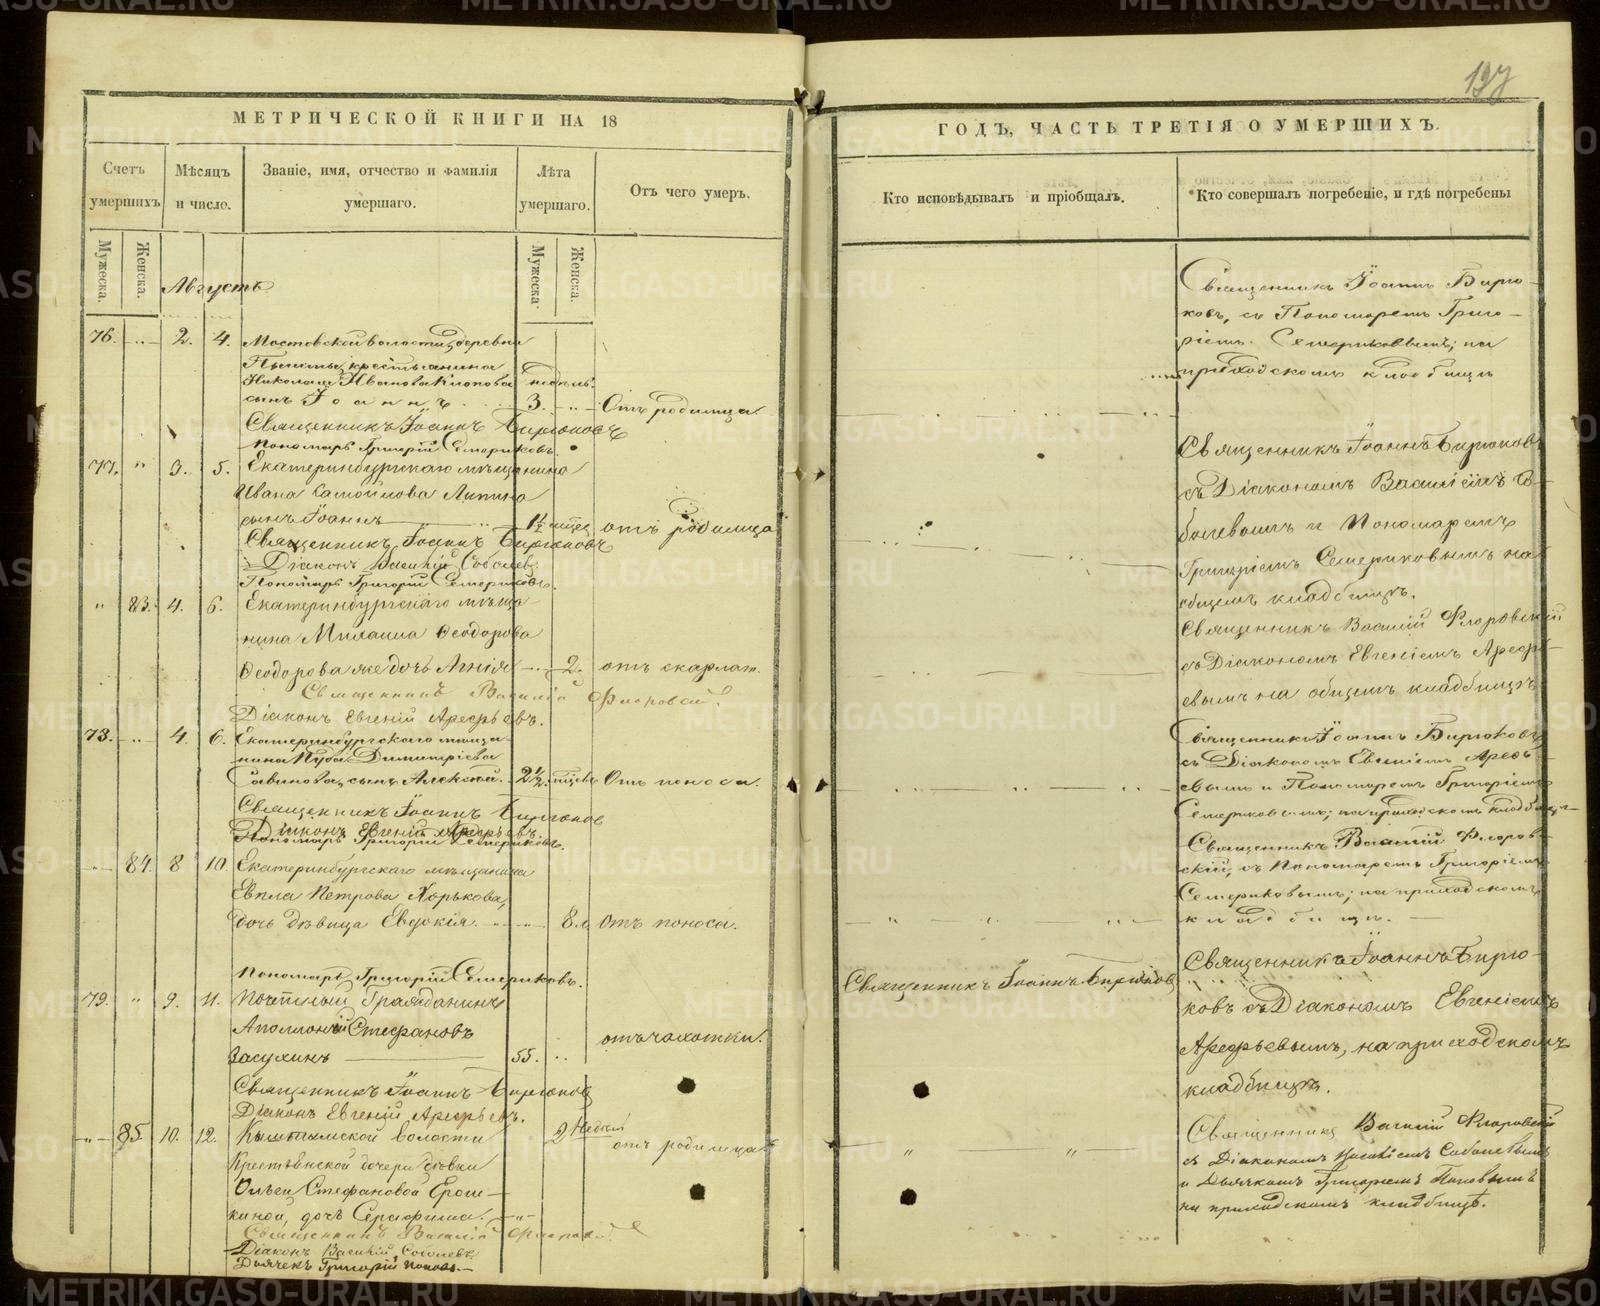 137
МЕТРИЧЕСКОЙ КНИГИ НА 18
ГОДЪ, ЧАСТЬ ТРЕТІЯ О УМЕРШИХЪ.
Счетъ умершихъ
Мѣсяцъ и число.
Званіе, имя, отчество и фамилія умершаго.
Лѣта умершаго.
Отъ чего умеръ.
Кто исповѣдывалъ и пріобщалъ.
Кто совершалъ погребеніе, и гдѣ погребены
Мужеска.
Женска.
Мужеска.
Женска.
Августъ
76. 2. 4. Мостовской волости, деревни
крестьянина
Николая Иванова
сынъ Іоаннъ 3. недѣль. Отъ родимца
Священникъ Іоаннъ Бирюковъ
Пономарь Григорій Семериковъ.
Священникъ Іоаннъ Бирю-
ковъ, съ Пономаремъ Григо-
ріемъ Семериковымъ; на
приходскомъ кладбищѣ
77. " 3. 5. Екатеринбургскаго мѣщанина
Ивана Самойлова Липина
сынъ Іоаннъ 1½ отъ родимца
Священникъ Іоаннъ Бирюковъ
Діаконъ Василій Соболевъ
Пономарь Григорій Семериковъ.
Священникъ Іоаннъ Бирюковъ
съ Діакономъ Василіемъ Со-
болевымъ и Пономаремъ
Григоріемъ Семериковымъ на
общемъ кладбищѣ.
" 83. 4. 6. Екатеринбургскаго мѣща-
нина Михаила Ѳеодорова
Ѳеодорова же дочь Агнія 2. отъ скарлат.
Священникъ Василій Флоровскій.
Діаконъ Евгеній Арефьевъ.
Священникъ Василій Флоровскій
съ Діакономъ Евгеніемъ Арефь-
евымъ на общемъ кладбищѣ
78. 4. 6. Екатеринбургскаго мѣща-
нина Димитріева
Савинова, сынъ Алексѣй. 2½ Отъ поноса.
Священникъ Іоаннъ Бирюков
Діаконъ Евгеній Арефьевъ
Пономарь Григорій Семериковъ.
Священникъ Іоаннъ Бирюковъ
съ Діакономъ Евгеніемъ Арефь-
евымъ и Пономаремъ Григоріемъ
Семериковымъ; на приходскомъ кладбищѣ
84. 8 10. Екатеринбургскаго мѣщанина
Евпла Петрова Хорькова,
дочь дѣвица Евдокія. 8. отъ поноса.
Пономарь Григорій Семериковъ.
Священникъ Василій Флоров-
скій, съ Пономаремъ Григоріемъ
Семериковымъ; на приходскомъ
кладбищѣ.
79. " 9. 11. Почетный Гражданинъ
Аполлоній Стефановъ
Засухинъ 55. отъ чахотки.
Священникъ Іоаннъ Бирюков
Діаконъ Евгеній Арефьевъ.
Священникъ Іоаннъ Бирюков
Священникъ Іоаннъ Бирю-
ковъ съ Діакономъ Евгеніемъ
Арефьевымъ, на приходскомъ
кладбищѣ.
85. 10. 12. Кыштымской волости
Крестьянской дочери дѣвки
Стефановой Ерош-
киной, дочь Серафима. 2 недѣли отъ родимца
Священникъ Василій Флоровскій
Діаконъ Василій Соболевъ
Дьячекъ Григорій Поповъ.
Священникъ Василій Флоровскій
съ Діакономъ Василіемъ Соболевымъ
и Дьячкомъ Григоріемъ Поповымъ
на приходскомъ кладбищѣ.
METRIKI.GASO-URAL.RU